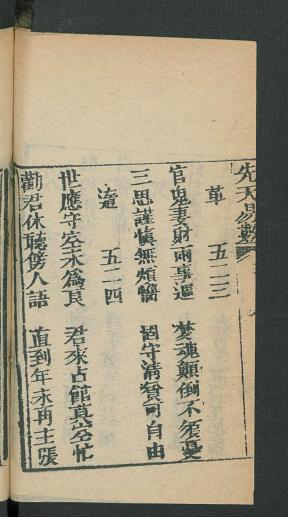 先天易數
革 五二三
官鬼妻財兩事逼 夢魂顛倒不須憂
三思謹慎無煩惱 固守清貧可自由
五二四
世應守空未為良 君來占館真空忙
勸君休聽傍人語 直到年末再主張